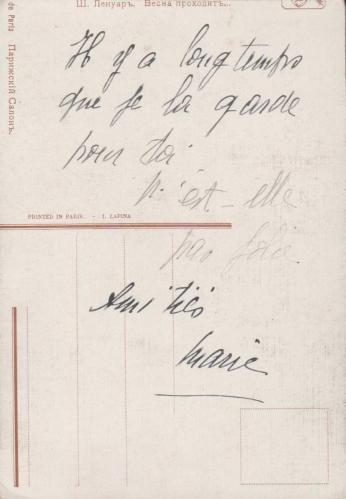 Ш. Ленуаръ. Весна проходитъ...
de Paris Парижскій Салонъ.
Il y a longtemps
que je la garde
pour toi
n'est-elle
PRINTED IN PARIS. - I. LAPINA
pas jolie
Amitiés
Marie